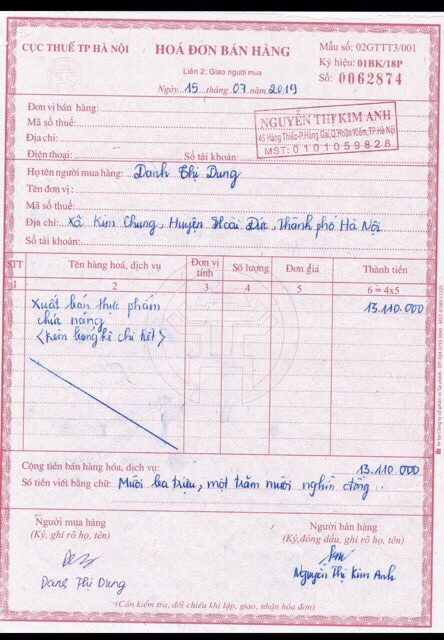 CỤC THUẾ TP HÀ NỘI
HOÁ ĐƠN BÁN HÀNG
Liên 2: Giao người mua
Ngày 15 tháng 07 năm 2019
Mẫu số: 02GTTT3/001
Ký hiệu: 01BK/18P
Số: 0062874
Đơn vị bán hàng:
Mã số thuế:
Địa chỉ:
Điện thoại: Số tài khoản:
NGUYỄN THỊ KIM ANH
45 Hàng Thiếc-P.Hàng Gai,Q.Hoàn Kiếm,TP.Hà Nội
MST: 0101059828
Họ tên người mua hàng: Danh Thị Dung
Tên đơn vị:
Mã số thuế:
Địa chỉ: Xã. Kim Chung, Huyện Hoài Đức, Thành phố Hà Nội
Số tài khoản:
STT Tên hàng hoá, dịch vụ Đơn vị tính Số lượng Đơn giá Thành tiền
1 2 3 4 5 6 = 4x5
Xuất bán thực phẩm 13.110.000
chức năng
<Kèm bảng kê chi tiết>
Cộng tiền bán hàng hóa, dịch vụ: 13.110.000
Số tiền viết bằng chữ: Mười ba triệu, một trăm mười nghìn đồng.
Người mua hàng
(Ký, ghi rõ họ, tên)
Danh Thị Dung
Người bán hàng
(Ký,đóng dấu, ghi rõ họ, tên)
Nguyễn Thị Kim Anh
(Cần kiểm tra, đối chiếu khi lập, giao, nhận hóa đơn)